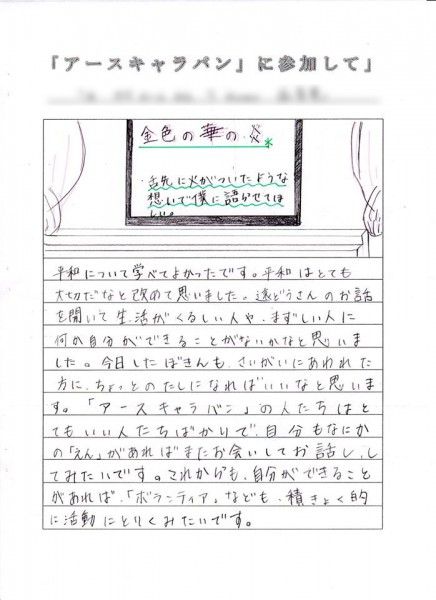 「アースキャラバン」に参加して」
金色の華の炎
舌先に火がついたような
想いで僕に語かせてほ
しい。
平和について学べてよかったです。平和はとても
大切だなと改めて思いました。遠どうさんのお話
を聞いて生活がくるしい人や、まずしい人に
何か自分ができることがないかなと思いま
した。今日したぼきんも、さいがいにあわれた
方に、ちょっとのたしになればいいなと思いま
す。「アースキャラバン」の人たちはと
てもいい人たちばかりで、自分もなにか
の「えん」があればまたお会いしてお話し、し
てみたいです。これからも、自分ができること
があれば、「ボランティア」なども、積きょく的
に活動にとりくみたいです。